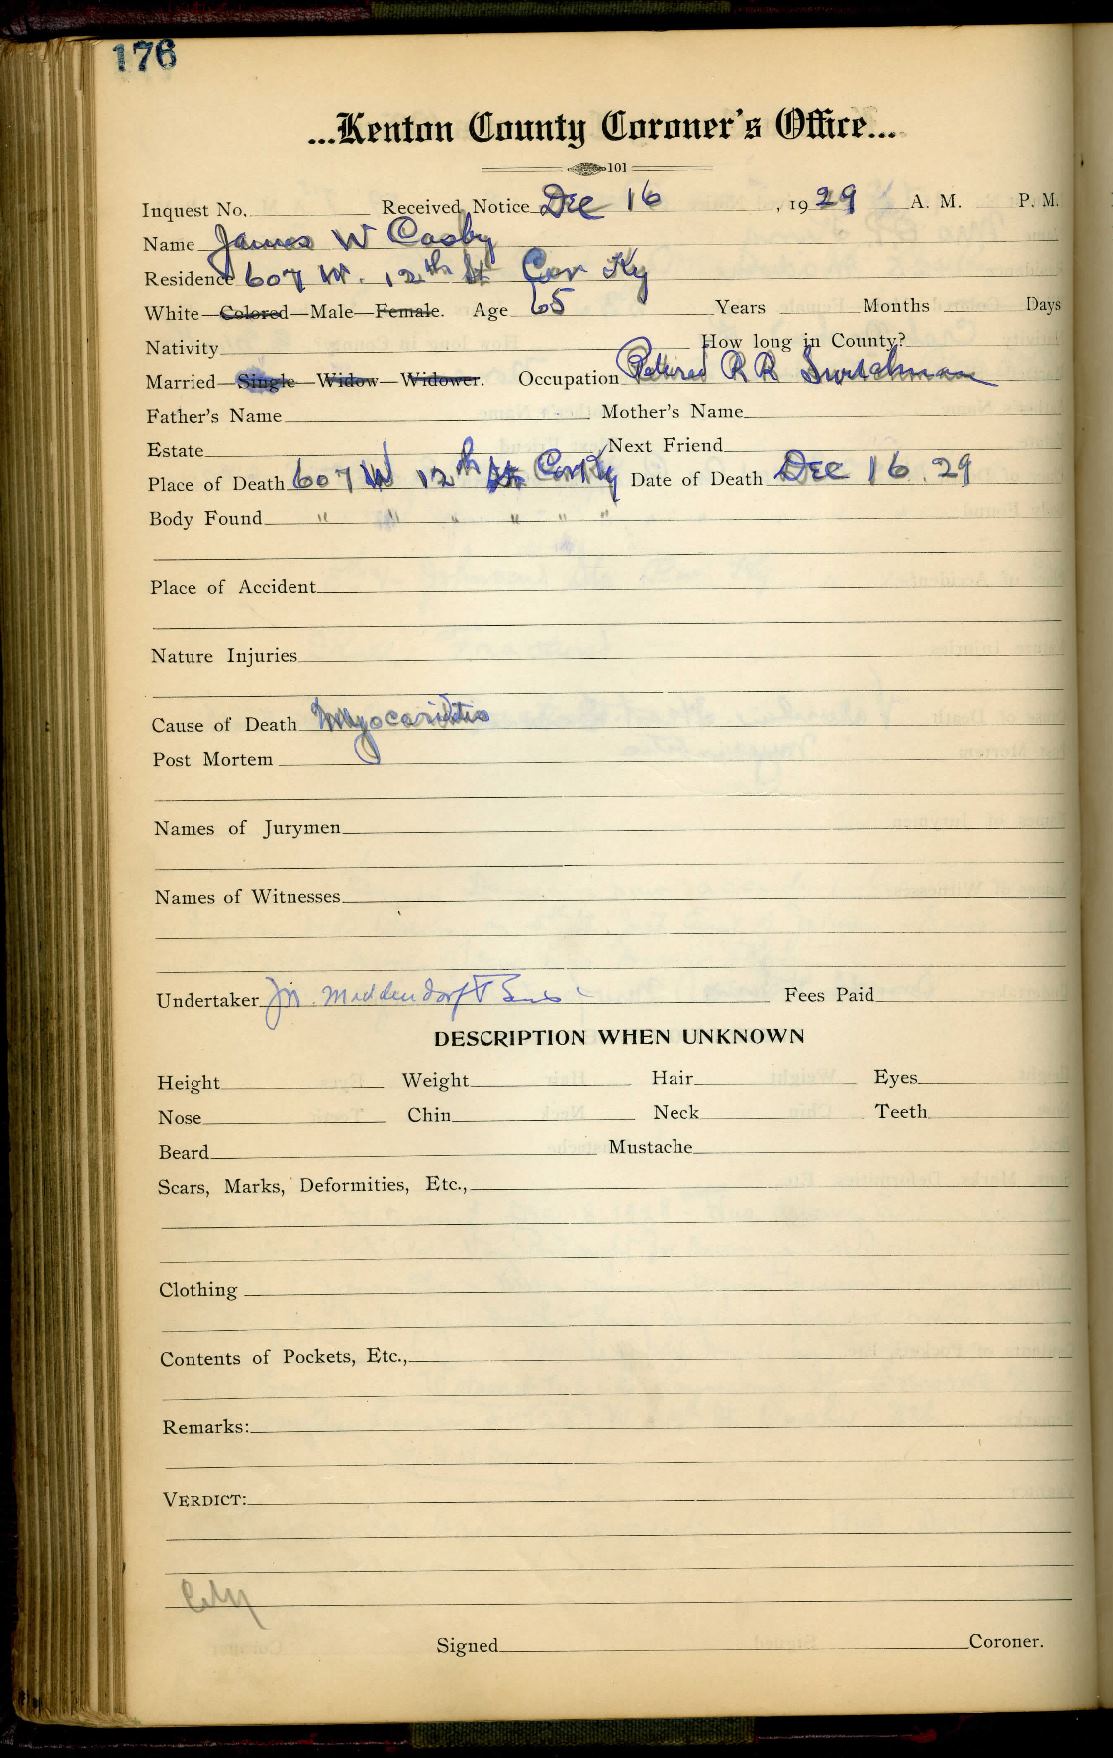 176
...Kenton County Coroner's Office...
101
Inquest No. Received Notice Dec 16, 1929 A. M. P. M.
Name James W Casby
Residence 607 W. 12th St Cov Ky
White—Colored—Male—Female. Age 65 Years Months Days
Nativity How long in County?
Married—Single—Widow—Widower. Occupation Retired R R Switchman
Father's Name Mother's Name
Estate Next Friend
Place of Death 607 W 12th St Cov Ky Date of Death Dec 16. 29
Body Found " " " " " "
Place of Accident
Nature Injuries
Cause of Death Myocarditis
Post Mortem
Names of Jurymen
Names of Witnesses
Undertaker Middendorf Sons Fees Paid
DESCRIPTION WHEN UNKNOWN
Height Weight Hair Eyes
Nose Chin Neck Teeth
Beard Mustache
Scars, Marks, Deformities, Etc.,
Clothing
Contents of Pockets, Etc.,
Remarks:
VERDICT:
Signed Coroner.